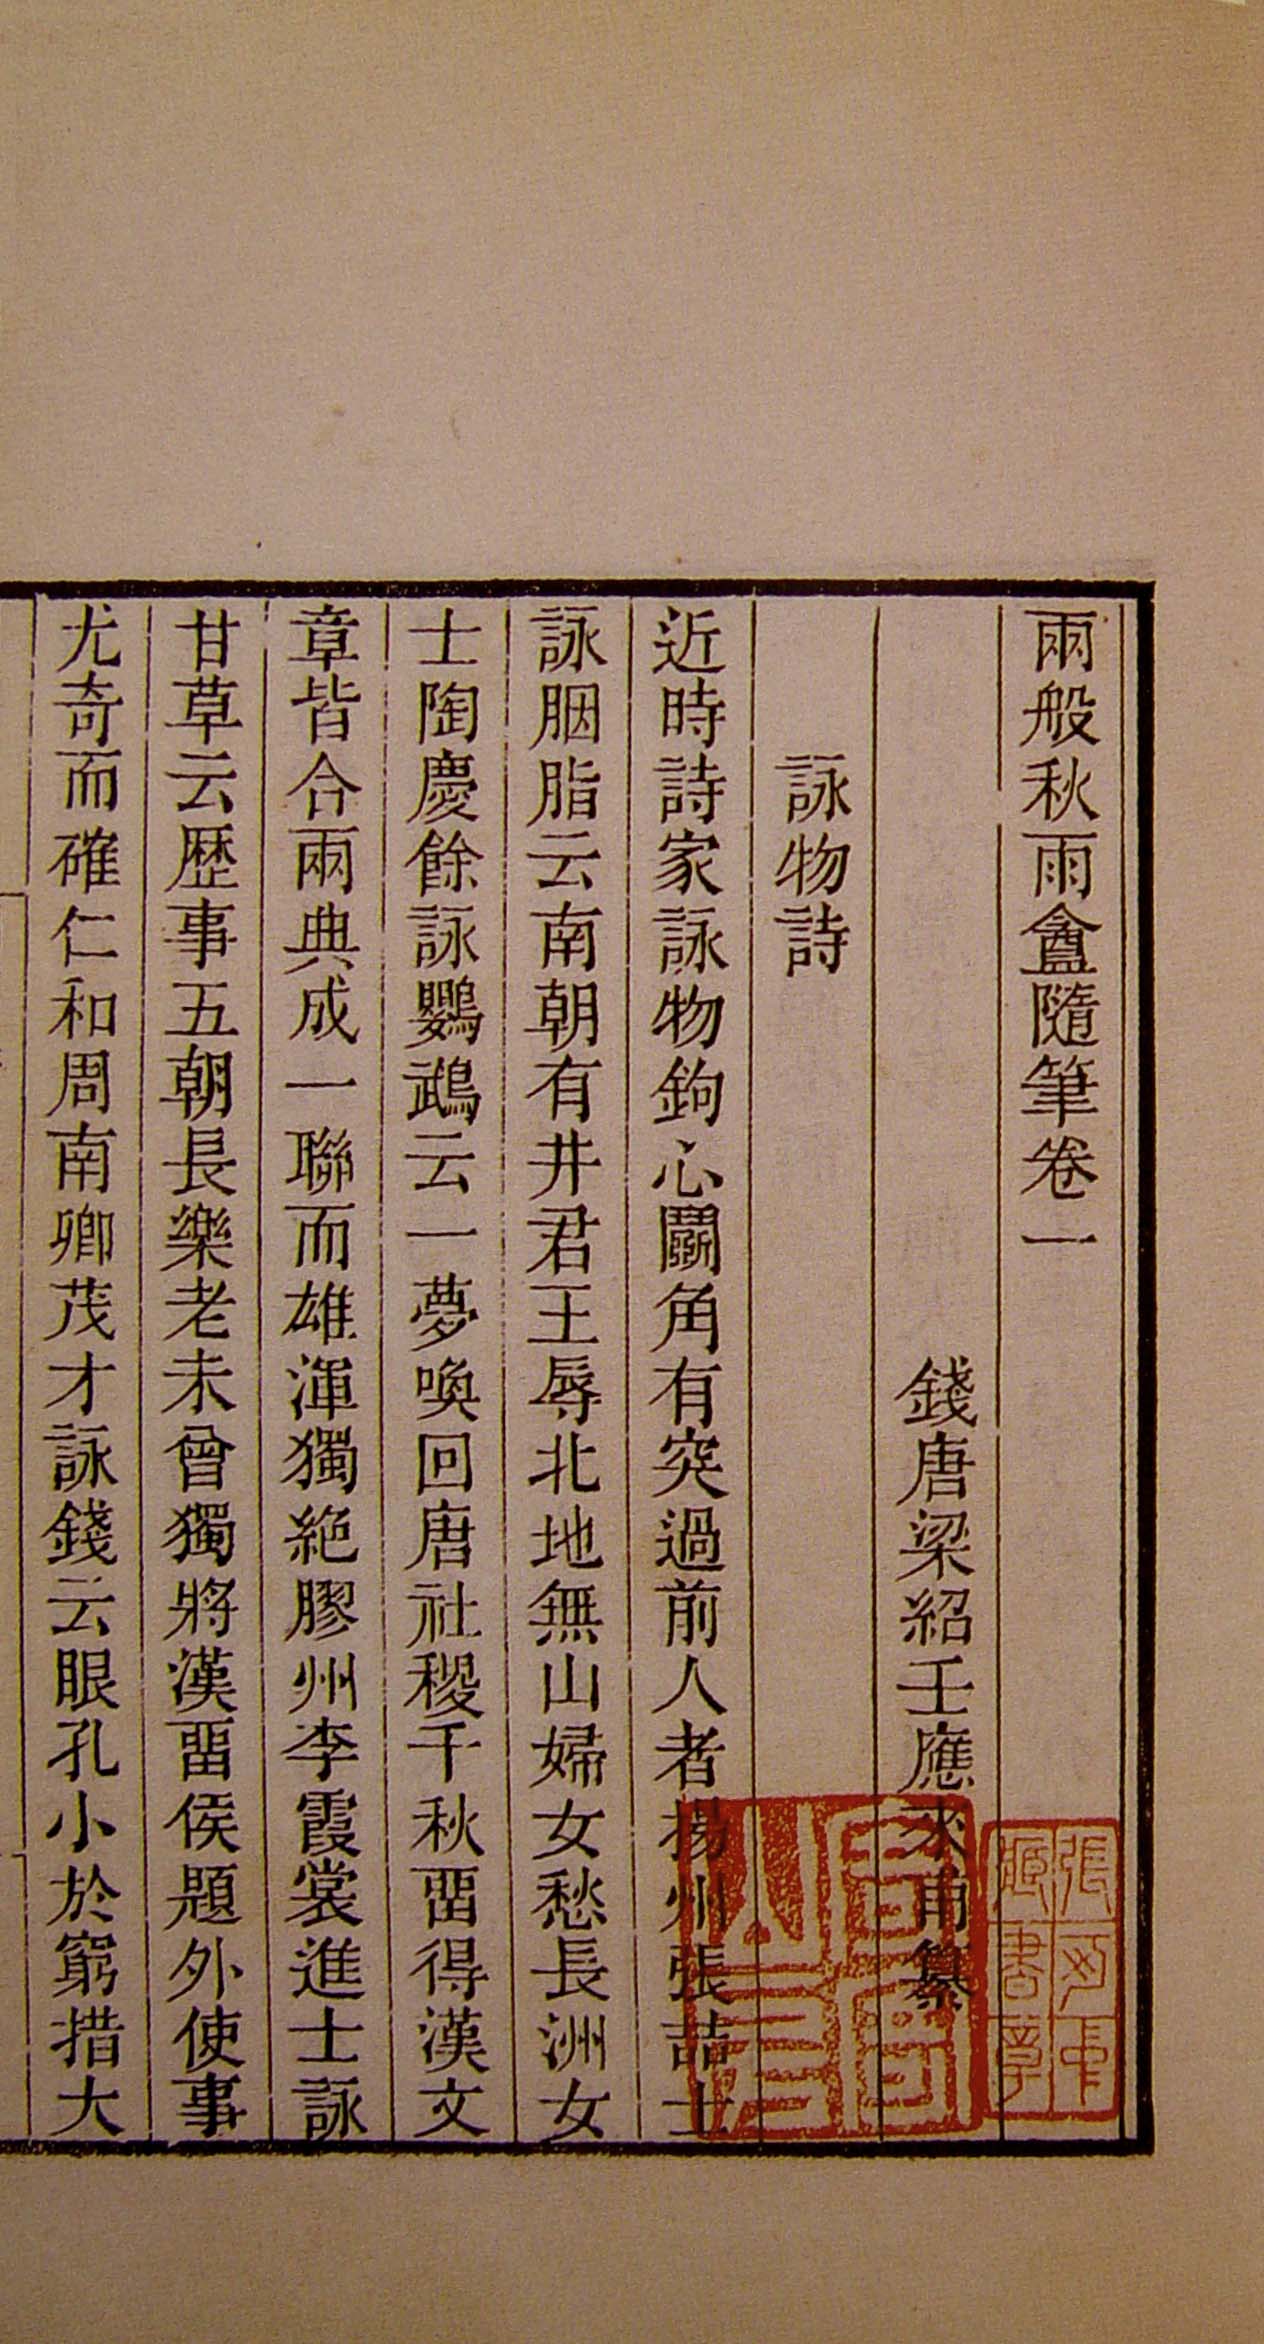 兩般秋雨盦隨筆卷一
錢唐梁紹壬應來甫纂
詠物詩
近時詩家詠物鉤心鬭角有突過前人者揚州張喆士
詠胭脂云南朝有井君王辱北地無山婦女愁長洲女
士陶慶餘詠鸚鵡云一夢喚回唐社稷千秋畱得漢文
章皆合兩典成一聯而雄渾獨絕膠州李霞裳進士詠
甘草云歷事五朝長樂老未曾獨將漢畱侯題外使事
尤奇而確仁和周南卿茂才詠錢云眼孔小於窮措大